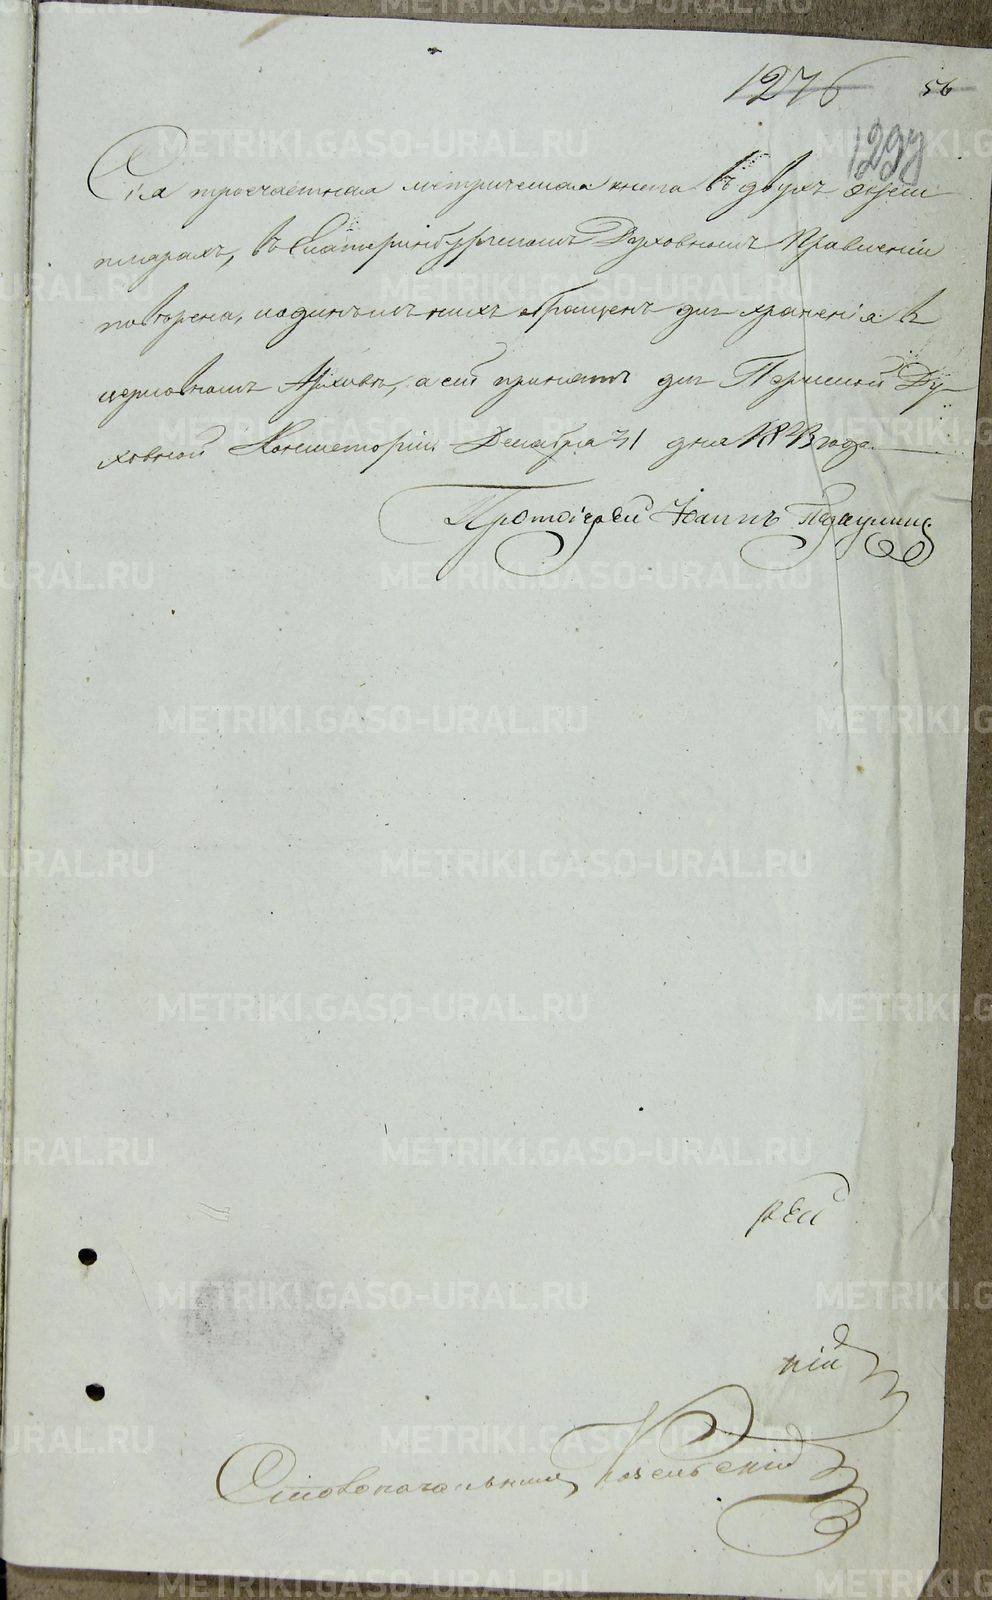 1276 56
1297
Сія троечастная метрическая книга въ двухъ экзем
плярахъ, въ Екатеринбургскомъ Духовномъ Правленіи
повѣрена, и одинъ изъ нихъ обращенъ для храненія въ
церковномъ Архивѣ, а сей принятъ для Пермской Ду-
ховной Консисторіи Декабря 31 дня 1843 года.
Протоіерей Іоаннъ
рей
ній
Столоначальникъ
METRIKI.GASO-URAL.RU